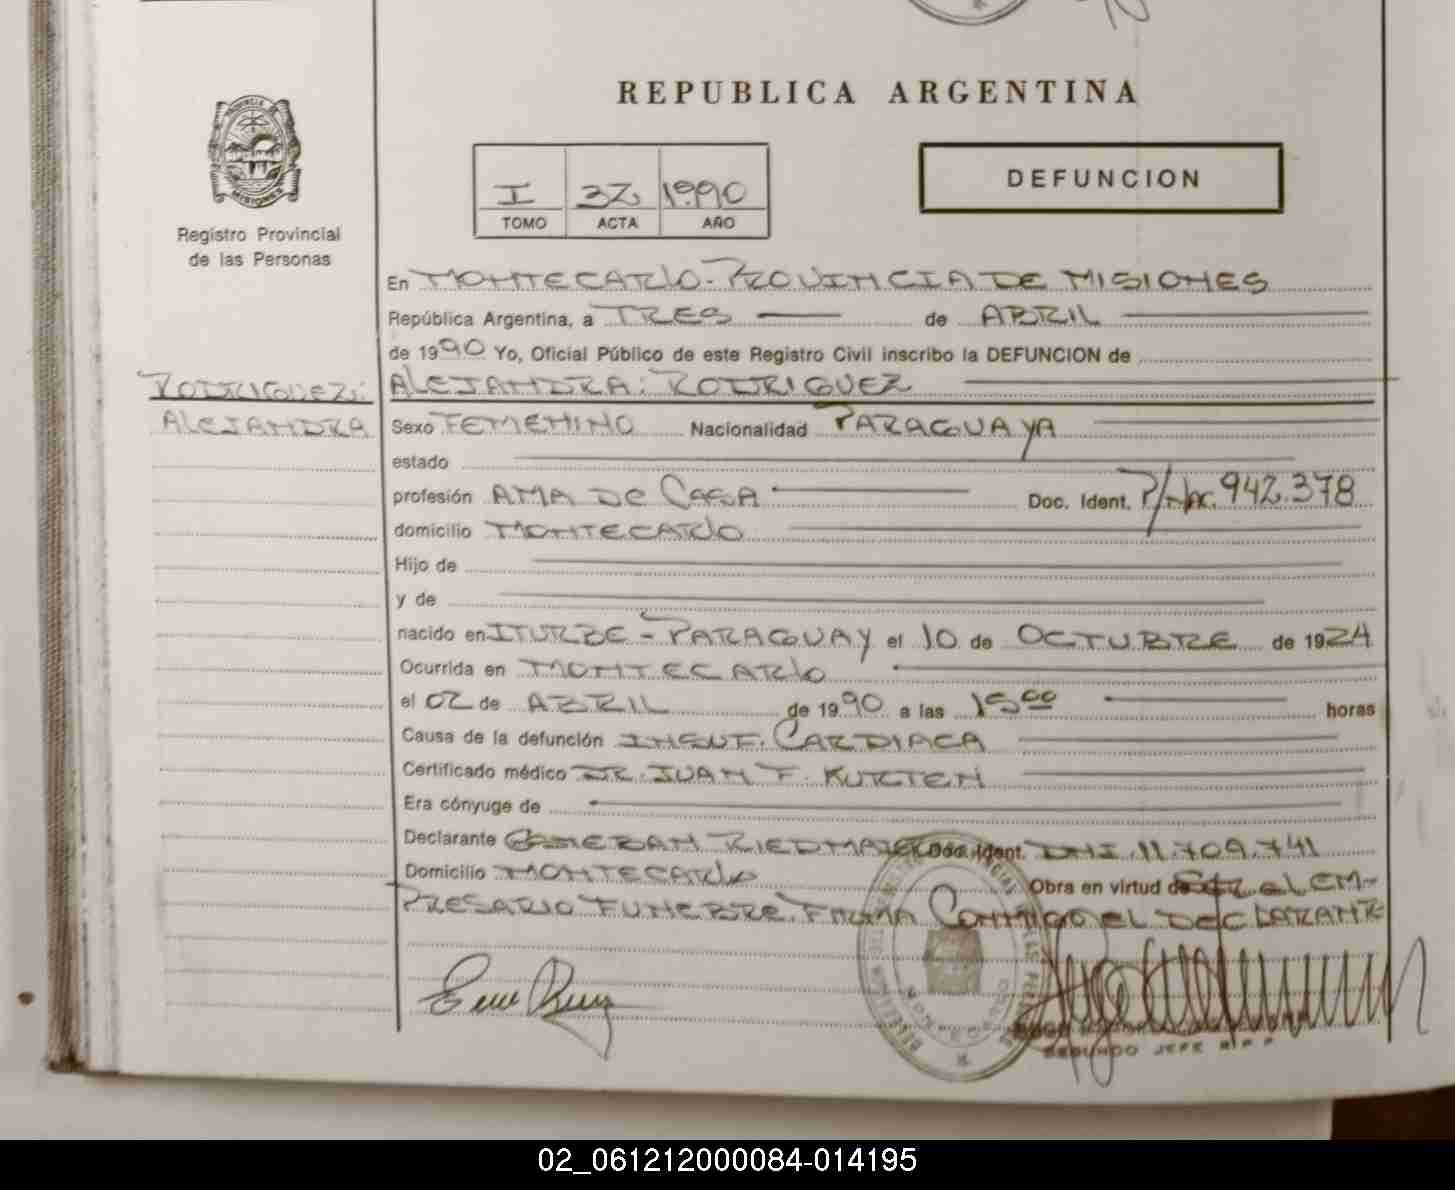 REPUBLICA ARGENTINA
DEFUNCION
I 32 1990
TOMO ACTA AÑO
PROVINCIA DE
MISIONES
Registro Provincial
de las Personas
En MONTECARLO - PROVINCIA DE MISIONES
República Argentina, a TRES de ABRIL
de 1990 Yo, Oficial Público de este Registro Civil inscribo la DEFUNCION de
RODRIGUEZ: ALEJANDRA: RODRIGUEZ
ALEJANDRA Sexo FEMENINO Nacionalidad PARAGUAYA
estado
profesión AMA DE CASA Doc. Ident. P/Nac. 942.378
domicilio MONTECARLO
Hijo de
y de
nacido en ITURBE - PARAGUAY el 10 de OCTUBRE de 1924
Ocurrida en MONTECARLO
el 02 de ABRIL de 1990 a las 15 00 horas
Causa de la defunción INSUF. CARDIACA
Certificado médico DR. JUAN F. KURTEN
Era cónyuge de
Declarante ESTEBAN Doc. Ident. DNI. 11.709.741
Domicilio MONTECARLO Obra en virtud de SER el EM-
PRESARIO FUNEBRE. FIRMA CONMIGO EL DECLARANTE
SEGUNDO JEFE R.P.P.
02_061212000084-014195